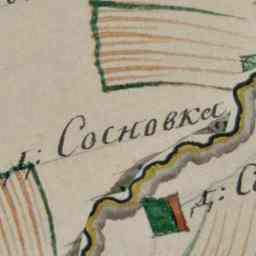 д: Сосновка
д: С